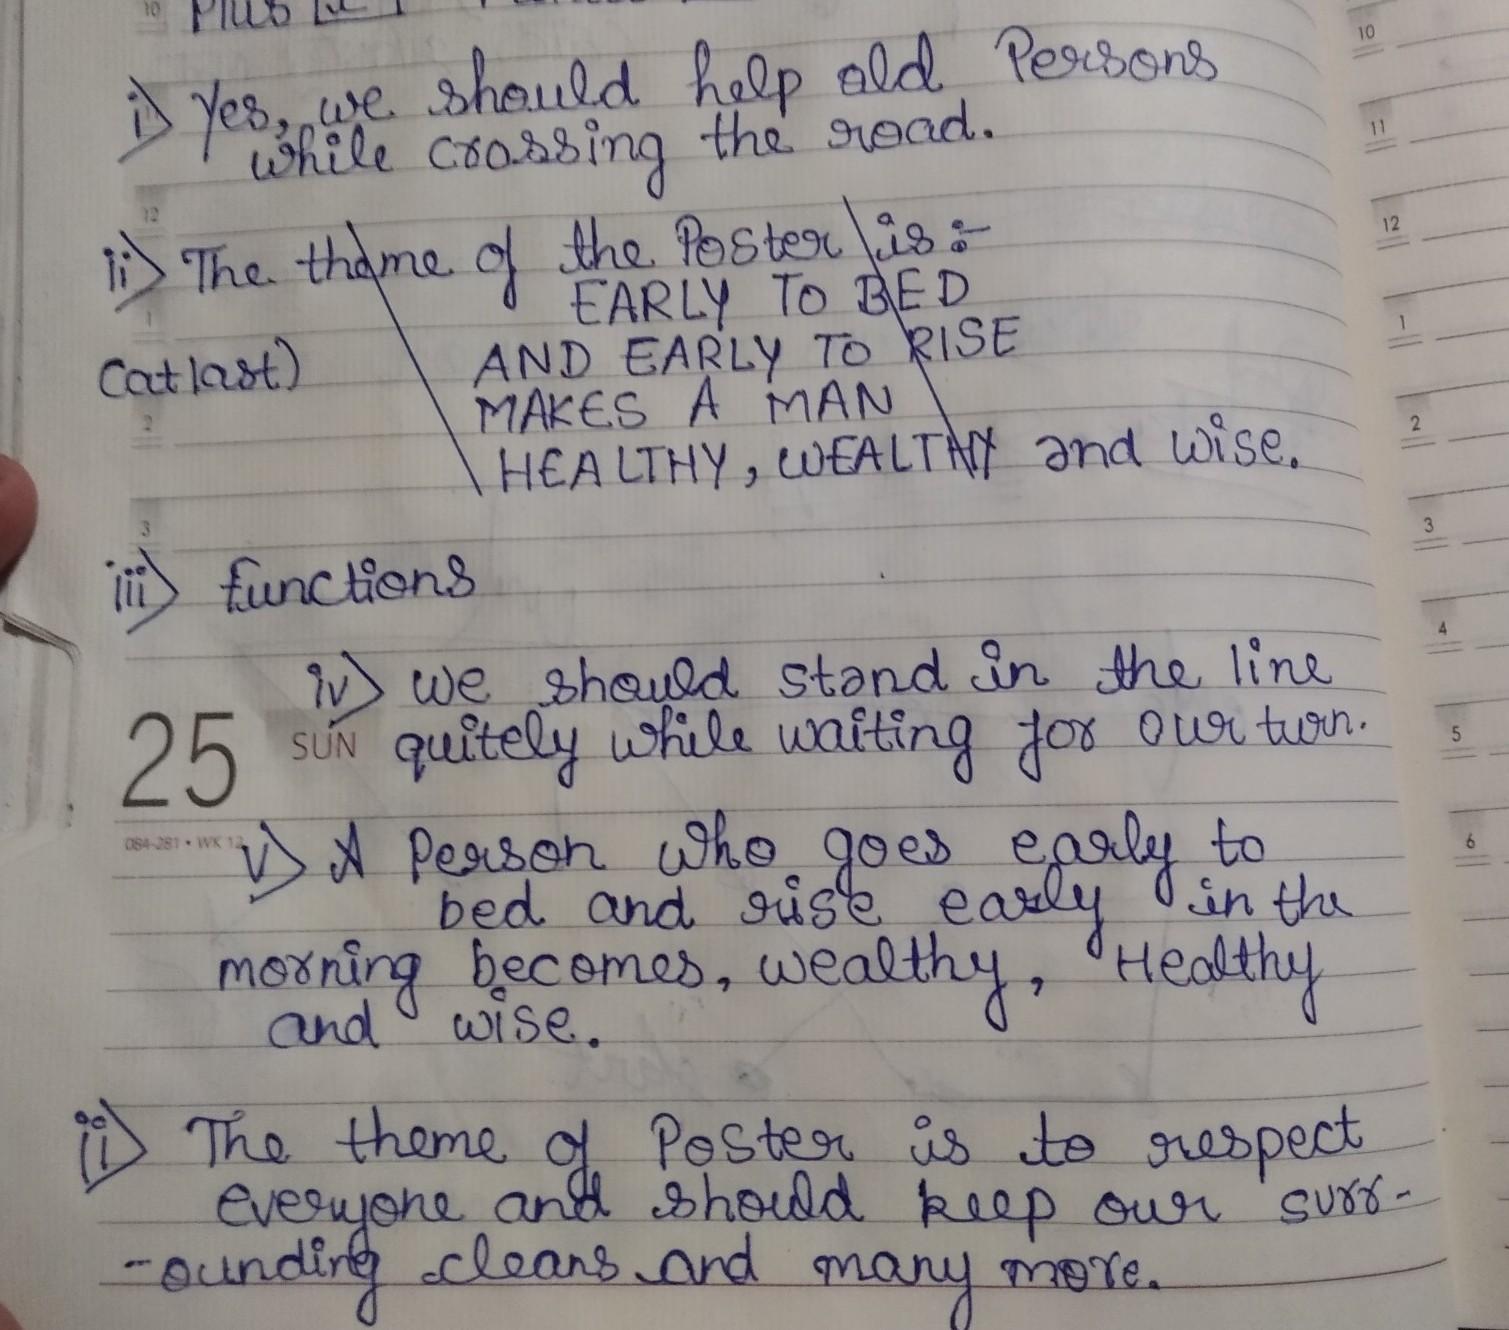 10
i) Yes, we should help old Persons
while crossing the road.
12
ii) The theme of the Poster is :-
EARLY TO BED
1
(at last) AND EARLY TO RISE
MAKES A MAN
2
HEALTHY, WEALTHY and wise.
3
iii) functions
iv) we should stand in the line
25 SUN quitely while waiting for our turn.
084-281 • WK 12
v) A Person who goes early to
bed and rise early in the
morning becomes, wealthy, Healthy
and wise.
ii) The theme of Poster is to respect
everyone and should keep our surr-
-ounding cleans and many more.
10
11
12
1
2
3
4
5
6